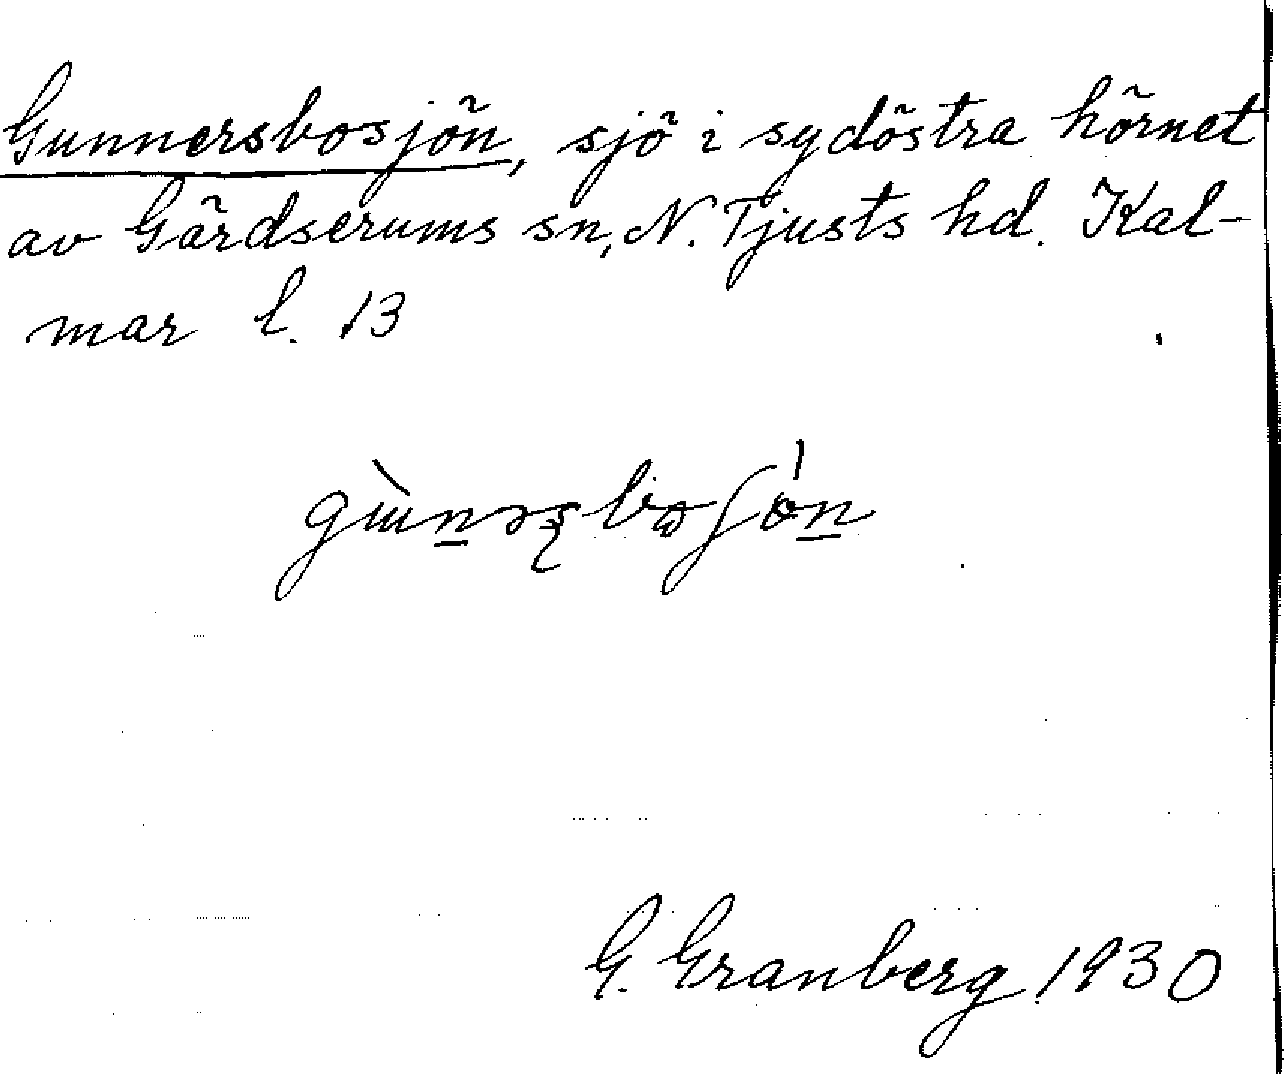 Gunnersbosjön, sjö i sydöstra hörnet
av Gärdserums sn, N. Tjusts hd. Kal-
mar l. 13
G. Granberg 1930